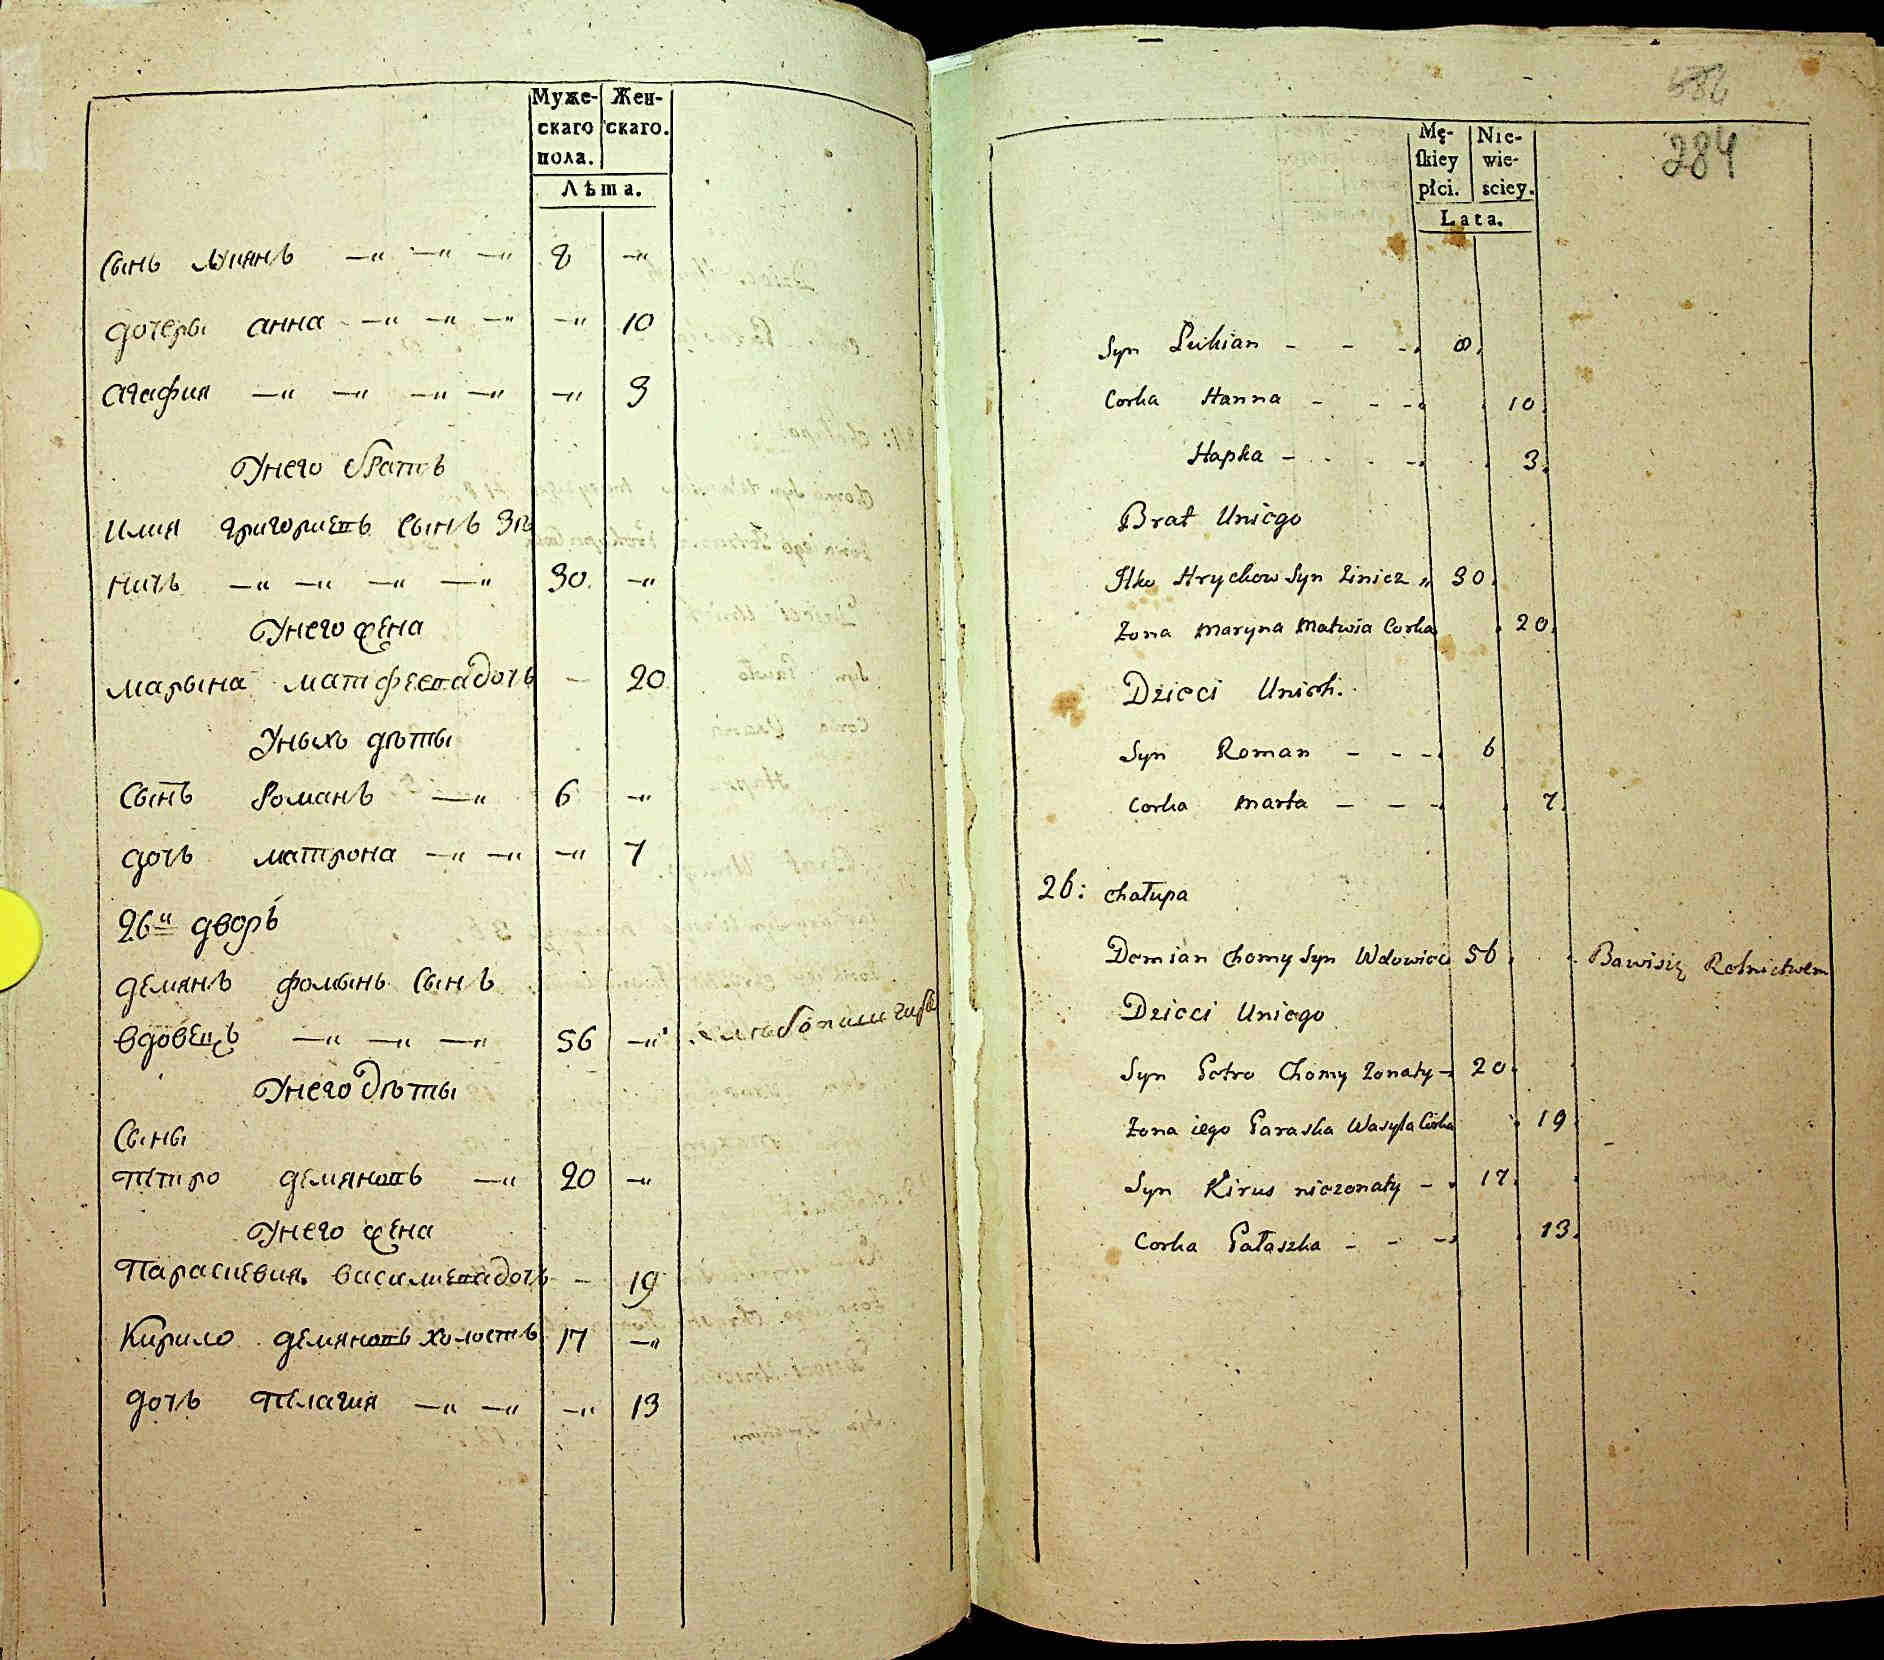 Муже-
скаго
пола.
Жен-
скаго.
Лѣта.
Сынъ Лукянъ —„ —„ —„ 8 —„
дочеры анна —„ —„ —„ —„ 10
агафия —„ —„ —„ —„ —„ 3
Унего братъ
Илия григориевъ сынъ Зѣ
ничъ —„ —„ —„ —„ 30. —„
Унего жена
марына матфеева дочь — 20
Уныхъ дѣты
Сынъ Романъ —„ 6 —„
дочъ матрона —„ —„ —„ 7
26й дворъ
демянъ фомынъ сынъ
вдовецъ —„ —„ —„ 56 —„ хлебопашецъ
Унего дѣты
Сыны
петро демяновъ —„ 20 —„
Унего жена
Параскевия василиева дочь — 19
Кирило демяновъ холостъ 17 —„
дочъ пелагия —„ —„ —„ 13
586
284
Mę-
skiey
płci.
Nie-
wie-
sciey.
Lata.
Syn Lukian - - - 8.
Corka Hanna - - - 10.
Hapka - - - - 3.
Brat Uniego
Ilko Hrychow Syn Zinicz „ 30.
Zona Maryna Matwia Corka 20.
Dzieci Unich.
Syn Roman - - - 6
Corka Marta - - - 7.
26: Chałupa
Demian Chomy Syn Wdowiec 56. Bawisię Rolnictwem
Dzieci Uniego
Syn Petro Chomy Zonaty - 20.
Zona iego Paraska Wasyla Corka 19.
Syn Kirus niezonaty - . 17.
Corka Pałaszka - - - 13.